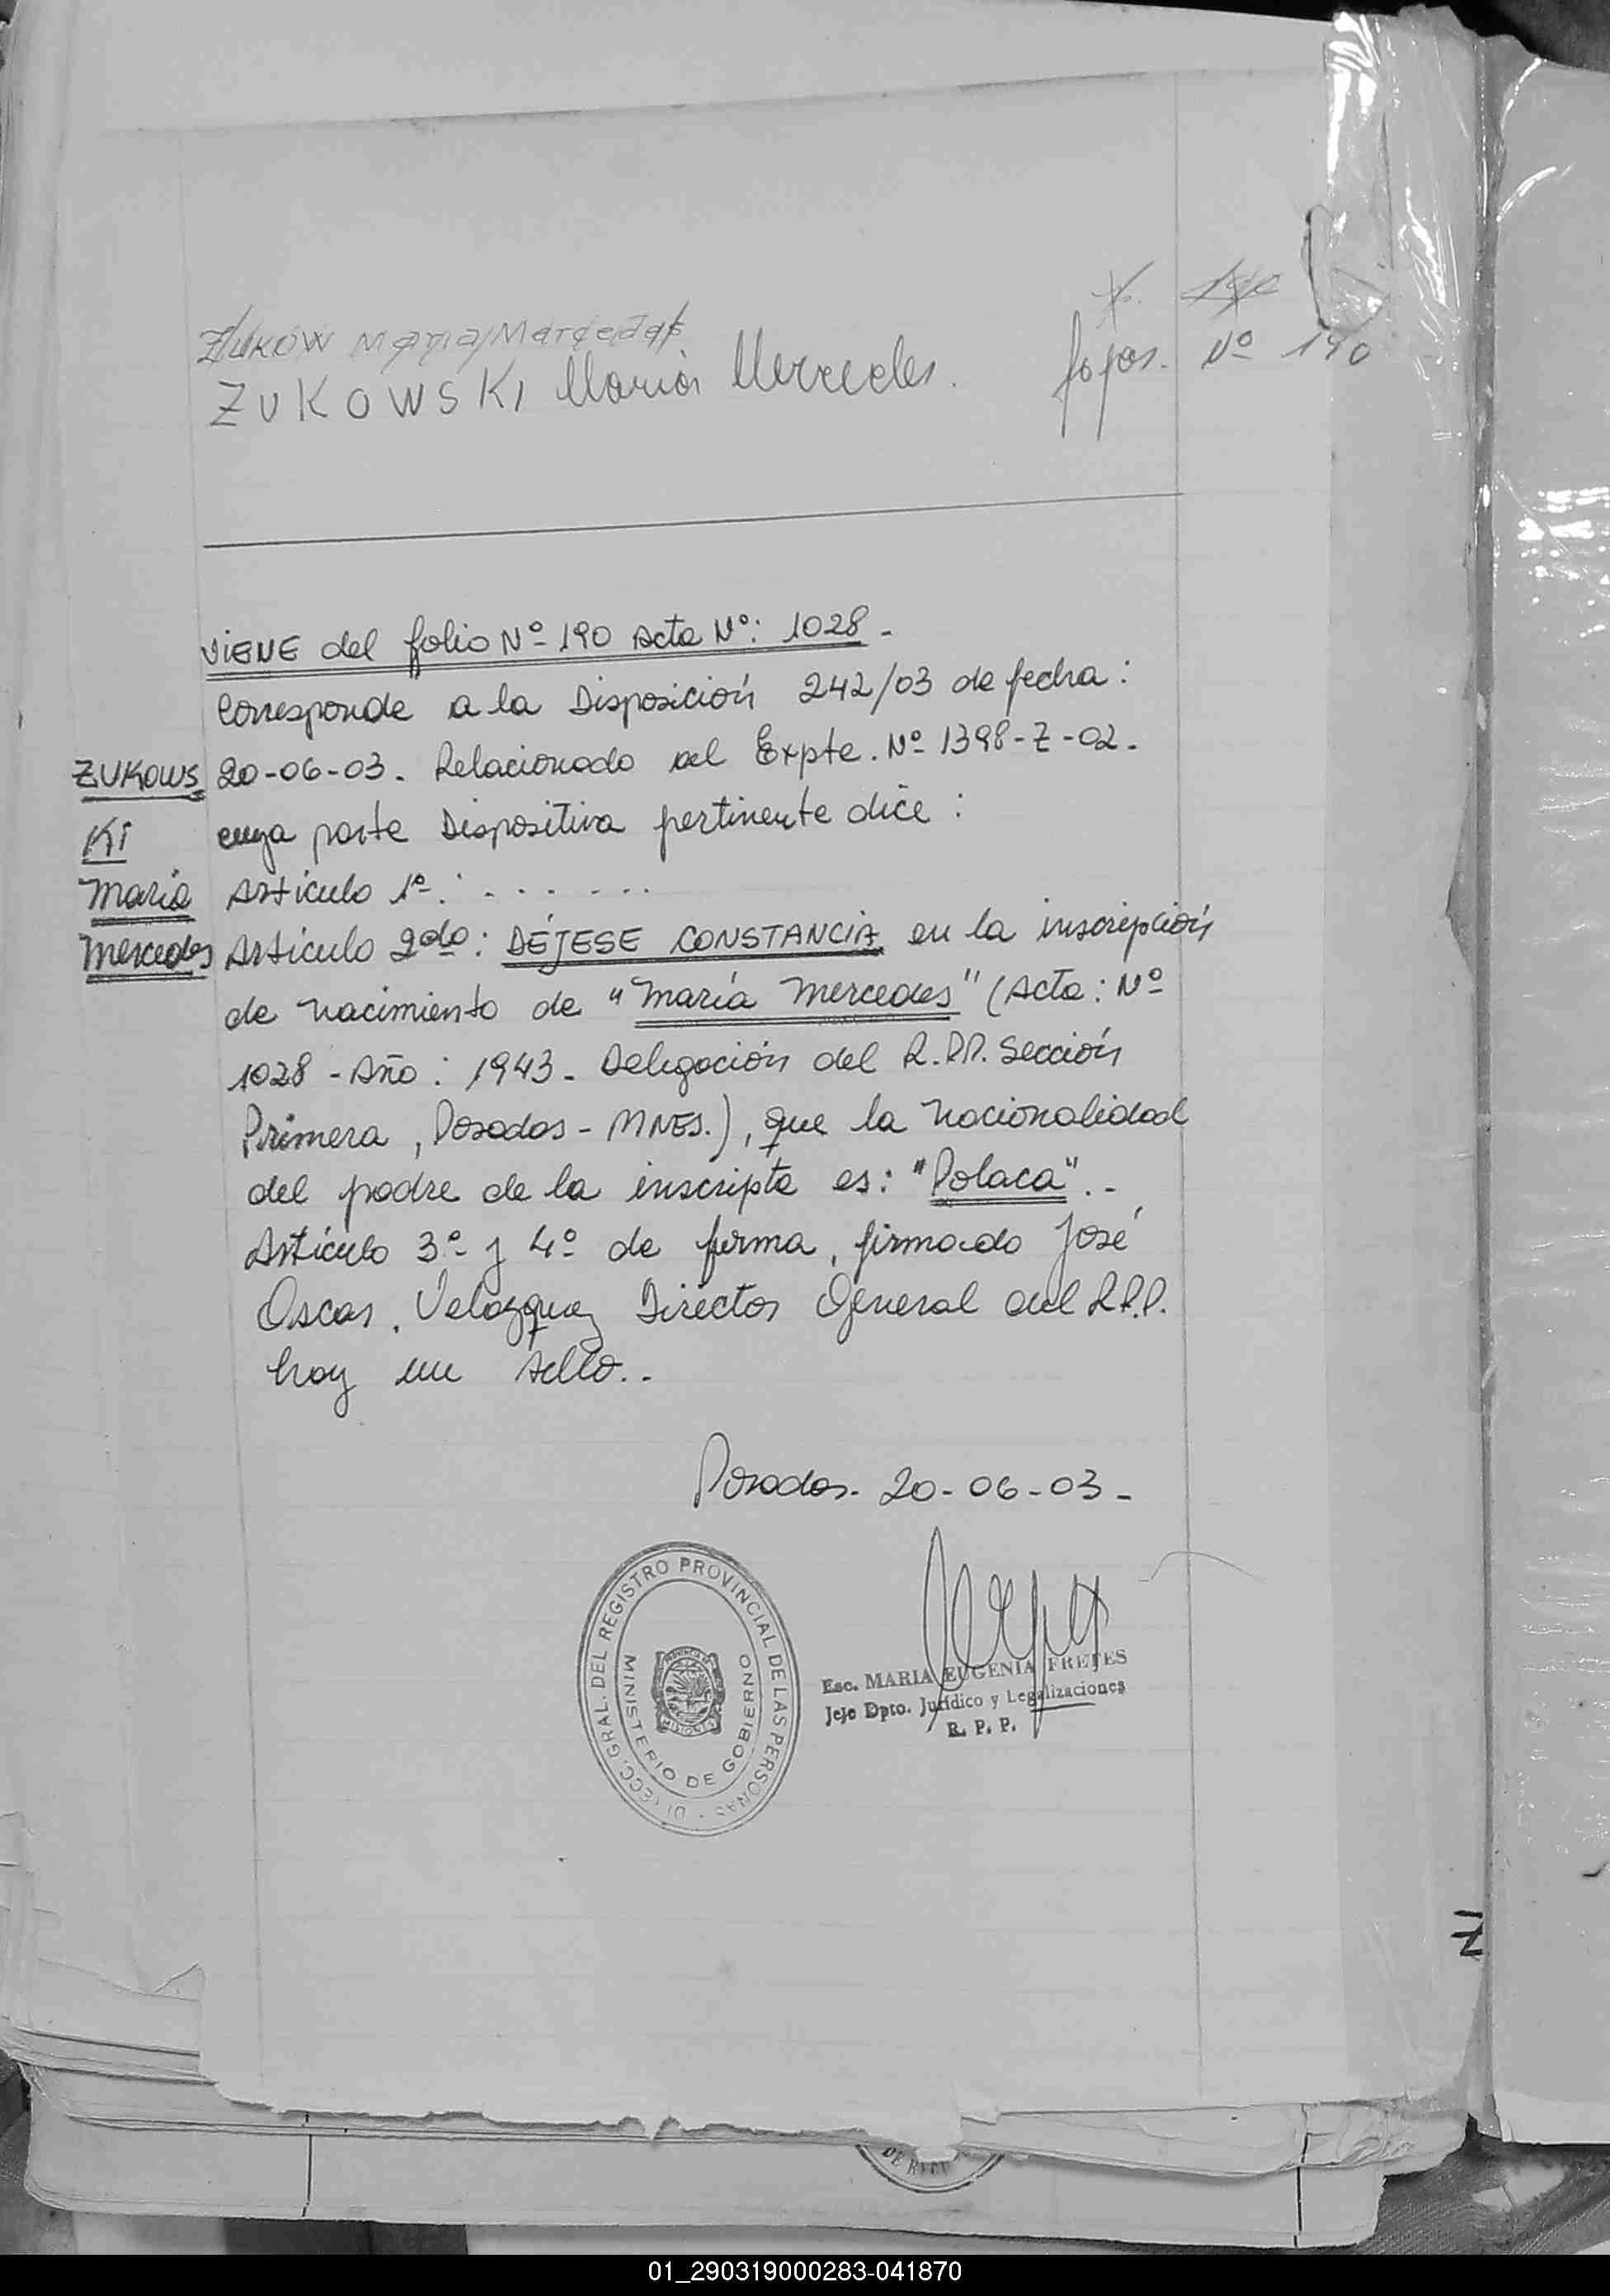 ZUKOW Maria Mercedes
ZUKOWSKI Maria Mercedes. fojas. Nº 190
VIENE del folio Nº 190 Acta Nº: 1028 -
Corresponde a la Disposición 242/03 de fecha:
20-06-03. Relacionado al Expte. Nº 1398-Z-02.
cuya parte Dispositiva pertinente dice:
Artículo 1º: . . . . . . .
Artículo 2do: DÉJESE CONSTANCIA en la inscripción
de nacimiento de "María Mercedes" (Acta: Nº
1028 - Año: 1943. Delegación del R.P.P. Sección
Primera, Posadas - MNES.), que la nacionalidad
del padre de la inscripta es: "Polaca". -
Artículo 3º y 4º de forma, firmado José
Oscar. Velazquez Director General del R.P.P.
hay un sello. .
ZUKOWS
KI
Maria
Mercedes
Posadas. 20-06-03-
DIRECC. GRAL. DEL REGISTRO PROVINCIAL DE LAS PERSONAS -
MINISTERIO DE GOBIERNO
MISIONES
Esc. MARIA EUGENIA FRETES
Jefe Dpto. Jurídico y Legalizaciones
R. P. P.
Z
01_290319000283-041870